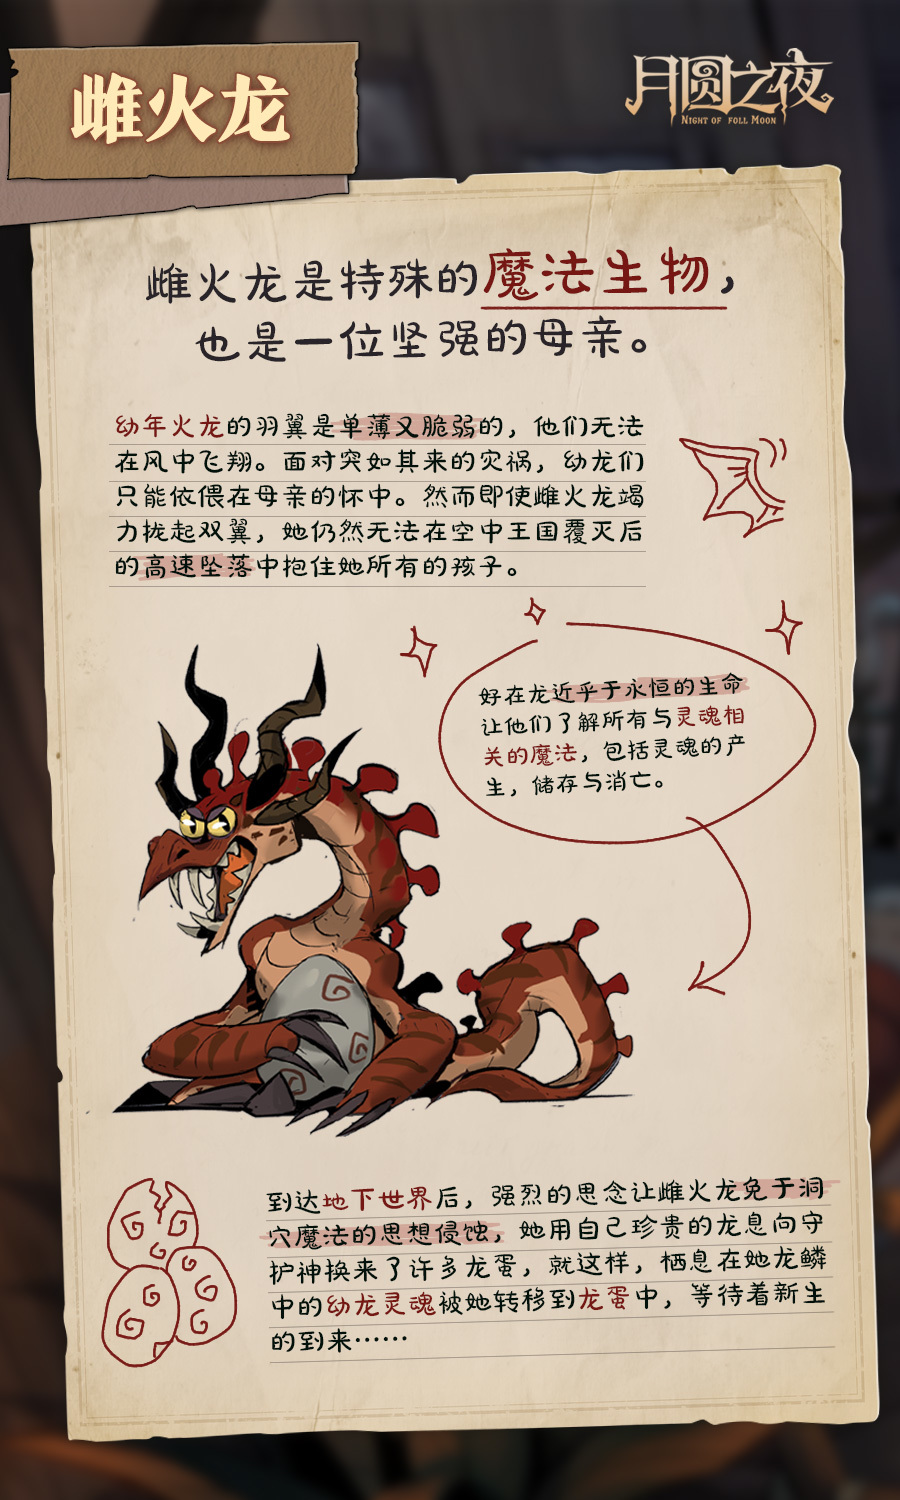 雌火龙
月圆之夜
NIGHT OF FOLL MOON
雌火龙是特殊的魔法生物，
也是一位坚强的母亲。
幼年火龙的羽翼是单薄又脆弱的，他们无法
在风中飞翔。面对突如其来的灾祸，幼龙们
只能依偎在母亲的怀中。然而即使雌火龙竭
力拢起双翼，她仍然无法在空中王国覆灭后
的高速坠落中抱住她所有的孩子。
好在龙近乎于永恒的生命
让他们了解所有与灵魂相
关的魔法，包括灵魂的产
生，储存与消亡。
到达地下世界后，强烈的思念让雌火龙免于洞
穴魔法的思想侵蚀，她用自己珍贵的龙息向守
护神换来了许多龙蛋，就这样，栖息在她龙鳞
中的幼龙灵魂被她转移到龙蛋中，等待着新生
的到来……